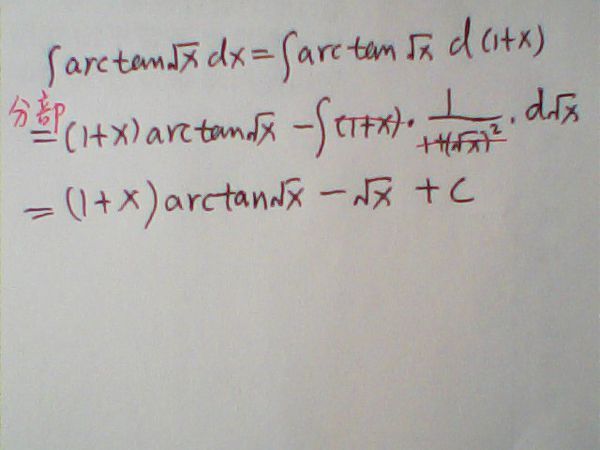 ∫arctan√x dx = ∫arctan √x d(1+x)
分部 = (1+x)arctan√x − ∫(1+x)·1/(1+(√x)²)·d√x
= (1+x)arctan√x − √x + C